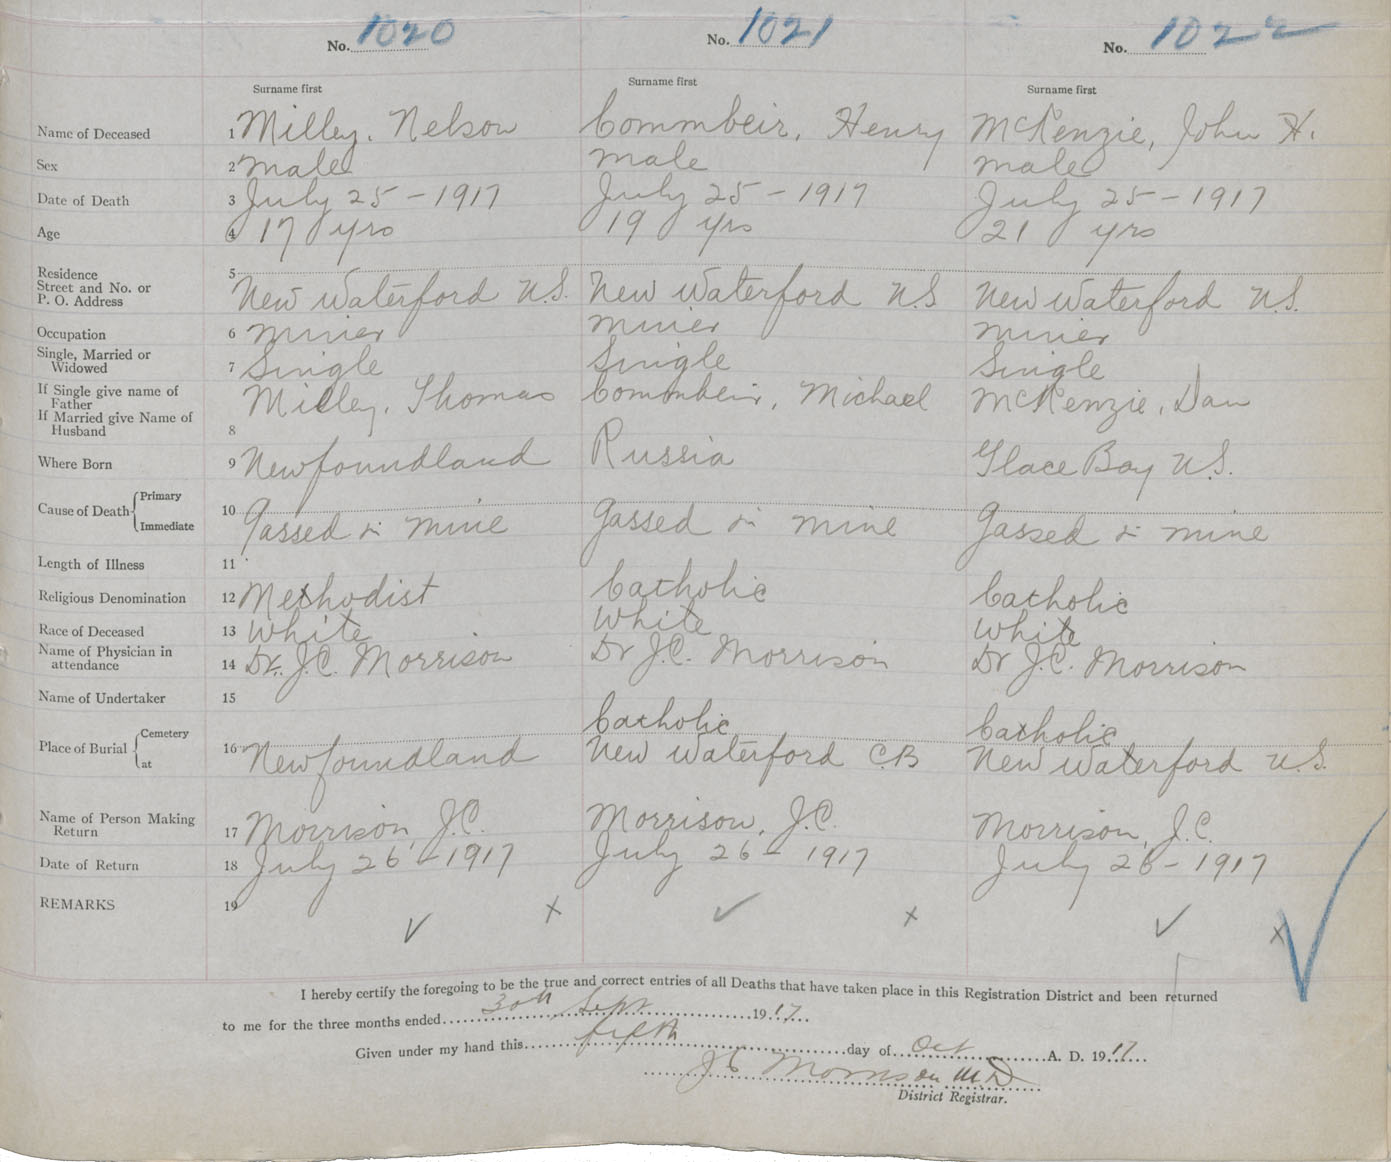 No. 1020 No. 1021 No. 1022
Surname first Surname first Surname first
Name of Deceased 1 Milley, Nelson Commbeir, Henry McKenzie, John H.
Sex 2 male male male
Date of Death 3 July 25 - 1917 July 25 - 1917 July 25 - 1917
Age 4 17 yrs 19 yrs 21 yrs
Residence 5
Street and No. or
P. O. Address New Waterford N.S. New Waterford N.S New Waterford N.S.
Occupation 6 miner miner miner
Single, Married or
Widowed 7 Single Single Single
If Single give name of
Father Milley, Thomas Commbeir, Michael McKenzie, Dan
If Married give Name of
Husband 8
Where Born 9 Newfoundland Russia Glace Bay N.S.
Cause of Death Primary 10
Immediate gassed in mine gassed in mine gassed in mine
Length of Illness 11
Religious Denomination 12 Methodist Catholic Catholic
Race of Deceased 13 White White White
Name of Physician in
attendance 14 Dr. J.C. Morrison Dr J.C. Morrison Dr J.C. Morrison
Name of Undertaker 15
Place of Burial Cemetery 16 Catholic Catholic
at Newfoundland New Waterford C.B New Waterford N.S.
Name of Person Making
Return 17 Morrison, J.C. Morrison, J.C. Morrison, J.C.
Date of Return 18 July 26 - 1917 July 26 - 1917 July 26 - 1917
REMARKS 19
✓ x ✓ x ✓ x ✓
I hereby certify the foregoing to be the true and correct entries of all Deaths that have taken place in this Registration District and been returned
to me for the three months ended 30th Sept 1917
Given under my hand this fifth day of Oct A. D. 1917
J C Morrison M.D
District Registrar.